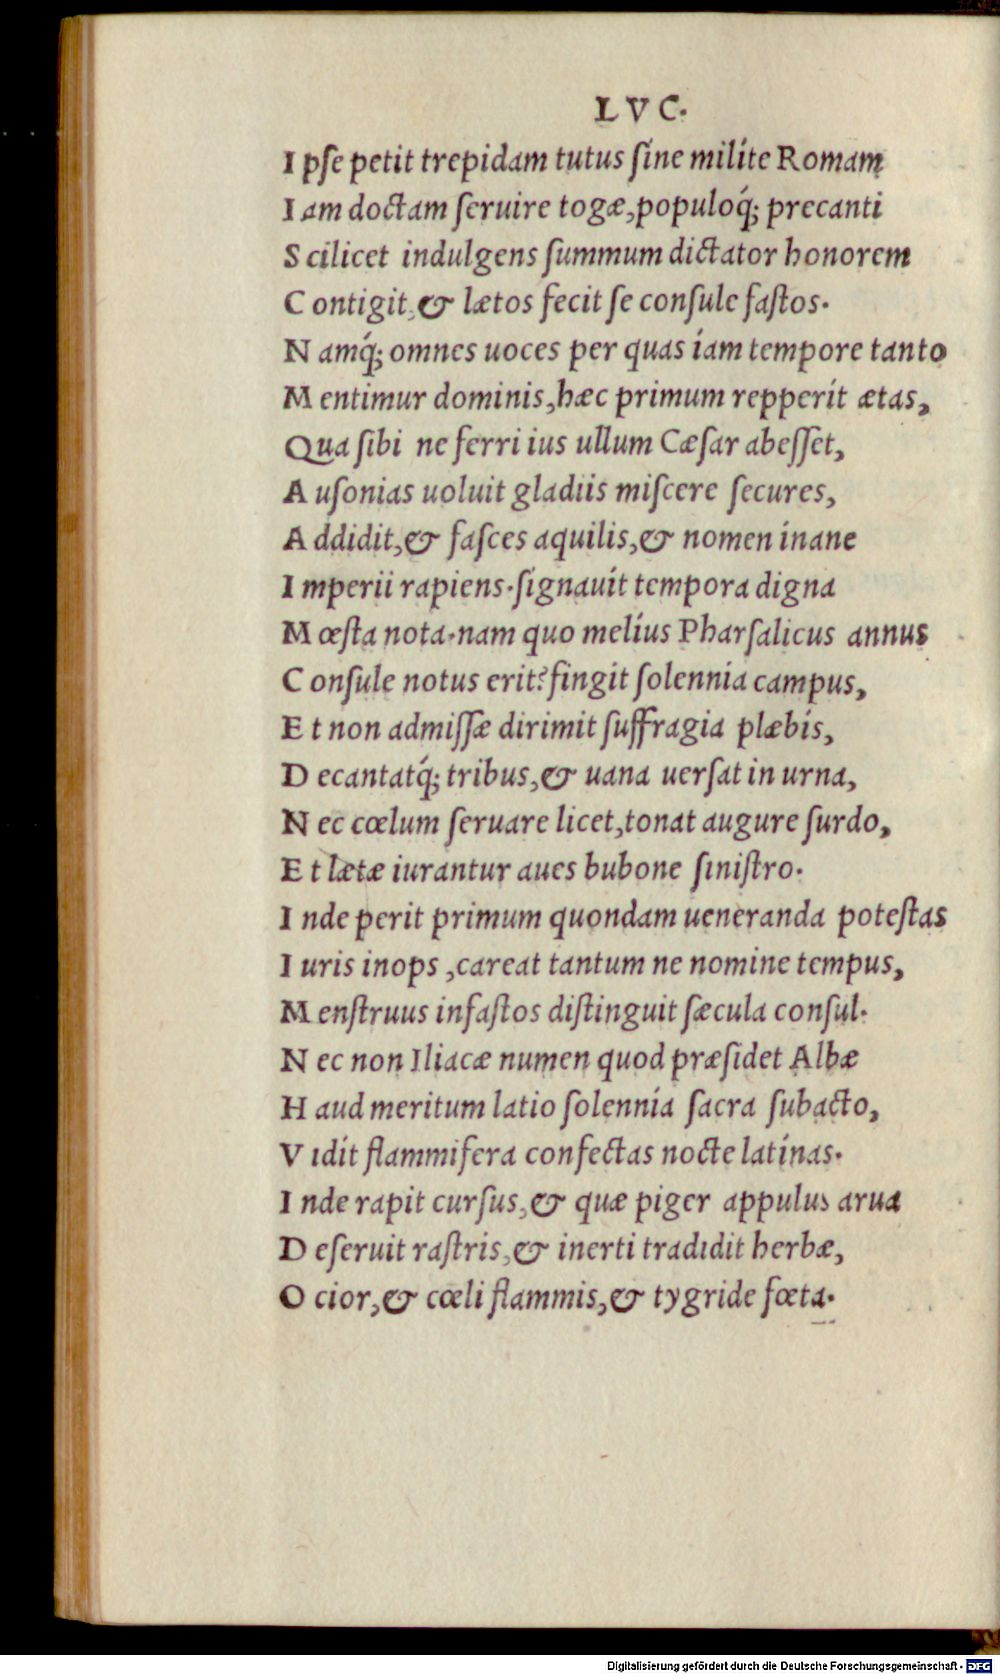 LVC.
I pſe petit trepidam tutus ſine milite Romam
I am doctam ſeruire togæ,populoq́; precanti
S cilicet indulgens ſummum dictator honorem
C ontigit,& lætos fecit ſe conſule faſtos.
N amq́; omnes uoces per quas iam tempore tanto
M entimur dominis,hæc primum repperit ætas,
Qua ſibi ne ferri ius ullum Cæſar abeſſet,
A uſonias uoluit gladiis miſcere ſecures,
A ddidit,& faſces aquilis,& nomen inane
I mperii rapiens.ſignauit tempora digna
M œſta nota.nam quo melius Pharſalicus annus
C onſule notus erit?fingit ſolennia campus,
E t non admiſſæ dirimit ſuffragia plæbis,
D ecantatq́; tribus,& uana uerſat in urna,
N ec cœlum ſeruare licet,tonat augure ſurdo,
E t lætæ iurantur aues bubone ſiniſtro.
I nde perit primum quondam ueneranda poteſtas
I uris inops ,careat tantum ne nomine tempus,
M enſtruus infaſtos diſtinguit ſæcula conſul.
N ec non Iliacæ numen quod præſidet Albæ
H aud meritum latio ſolennia ſacra ſubacto,
V idit flammifera confectas nocte latinas.
I nde rapit curſus,& quæ piger appulus arua
D eſeruit raſtris,& inerti tradidit herbæ,
O cior,& cœli flammis,& tygride fœta.
Digitalisierung gefördert durch die Deutsche Forschungsgemeinschaft - DFG